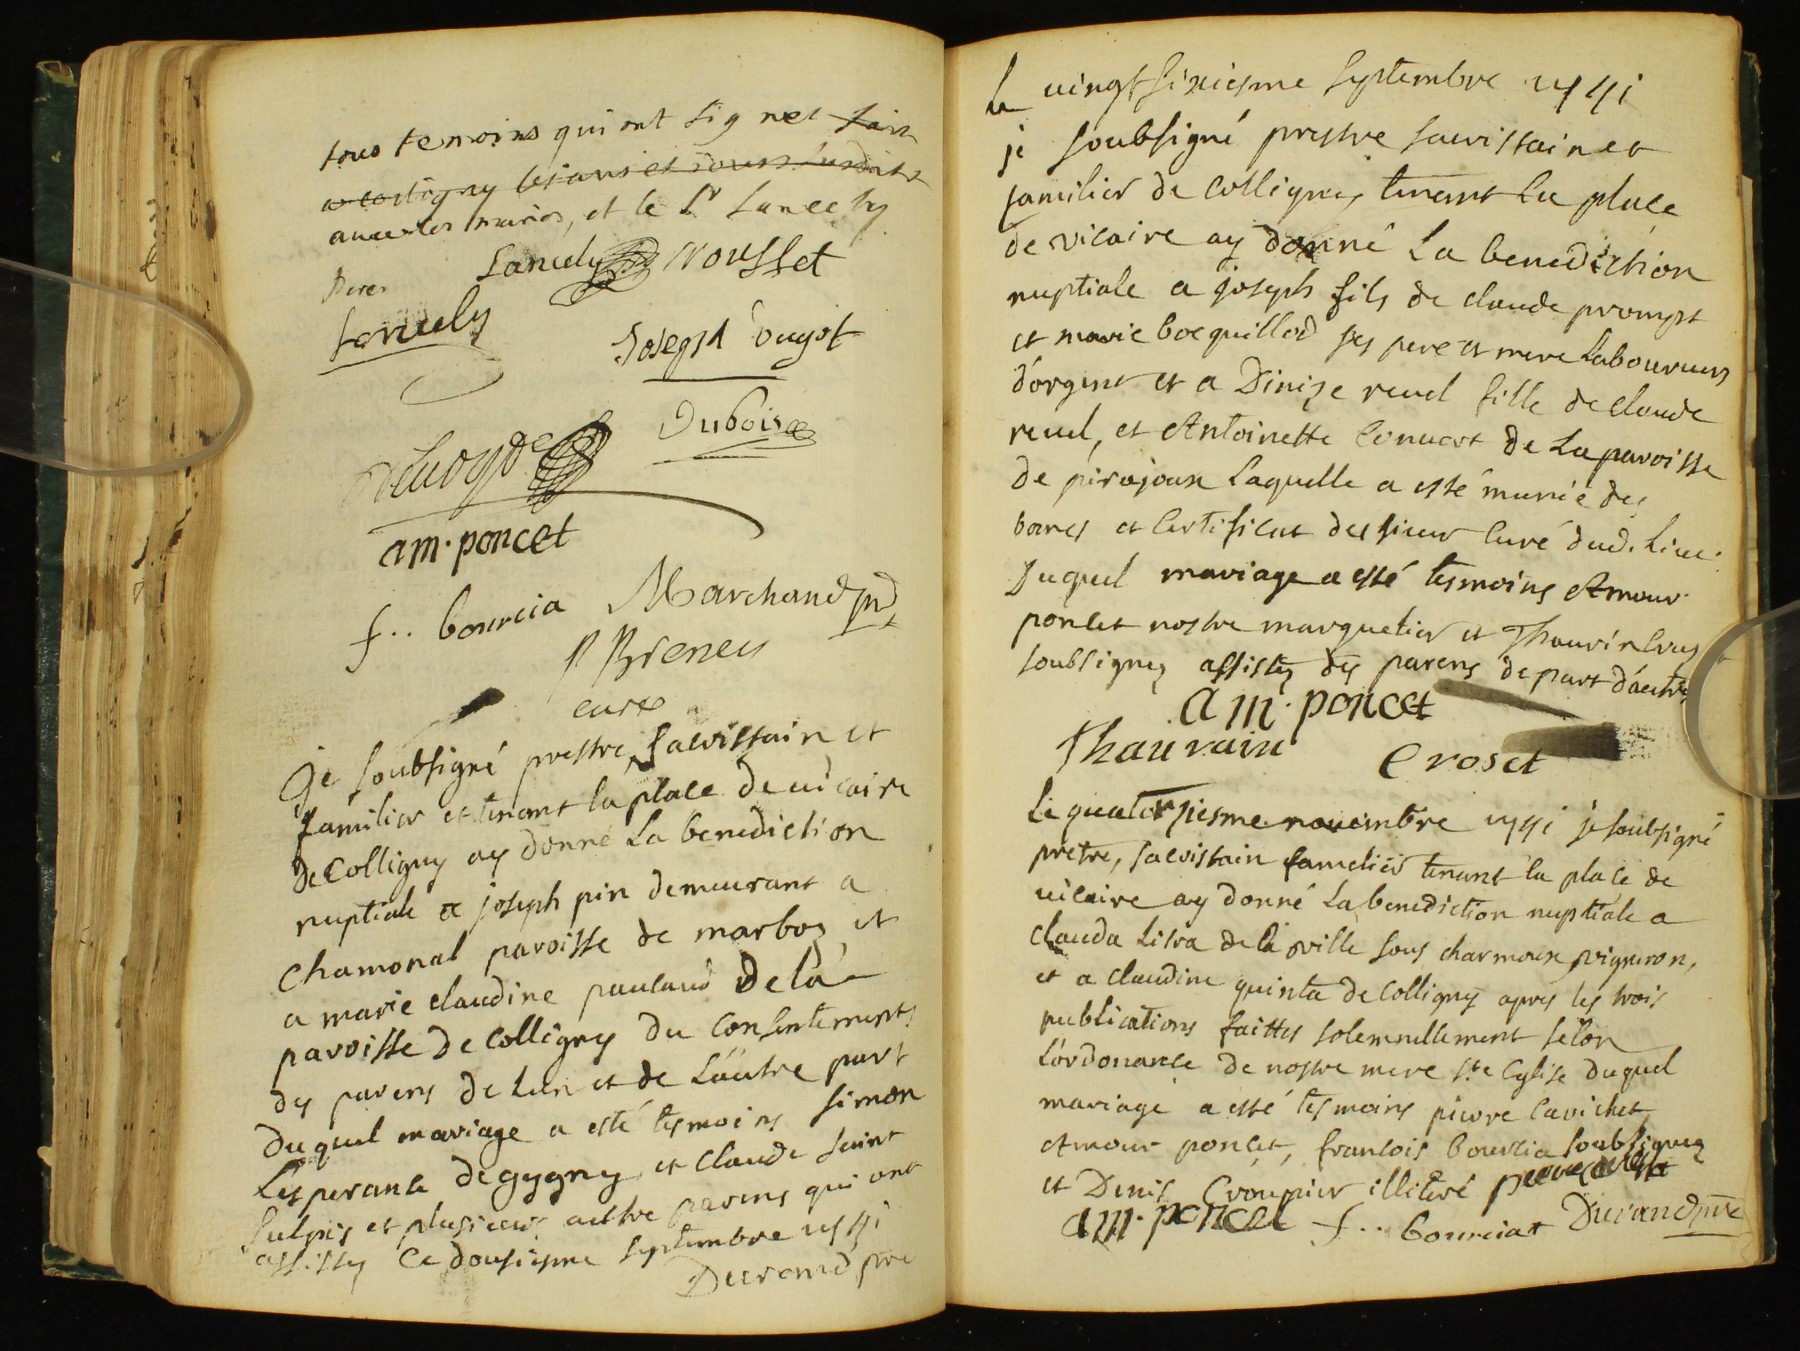 tous temoins qui ont signes fait
a colligny les ans et jours susdits
avec les mariés, et le Sr Lancely
Pere.
Lancely Nousset
Lancely
Joseph Dugot
Dubois
am. poncet
f.. bourcia Marchand
P Breney
curé
Je soubsigné prestre sacristain et
familier et tenant la place de vicaire
de Colligny ay donné La benediction
nuptiale a joseph pin demeurant a
Chamonal paroisse de marboz et
a marie claudine pauland de la
paroisse de Colligny du Consentements
des parens de Lun et de Lautre part
duquel mariage a esté tesmoins simon
Lesperance de gygny et Claude saint
sulpis et plusieurs aultre parens qui ont
assistez Ce dousiesme septembre
Durand pre
Le vingtsixiesme septembre
je soubsigné prestre sacristain et
familier de Colligny tenant La place
de vicaire ay donné La benediction
nuptiale a joseph fils de claude prompt
et marie bocquillod ses pere et mere Laboureurs
d'orgent et a Dinize revel fille de claude
revel, et Antoinette de La paroisse
de pirajoux Laquelle a esté munie des
bancs et Certificat des sieur Curé dud. Lieu.
Duquel mariage a esté tesmoins Amour
poncet nostre marguelier et Thauvin
soubsignez assistez des parens de part d'autre
am. poncet
Thauvain Croset
Le quatorziesme novembre je soubsigné
pretre, sacristain familier tenant la place de
vicaire ay donné La benediction nuptiale a
Clauda Lisra de la ville sous charmoux vigneron,
et a claudine quinta de Colligny apres les trois
publications faittes solemnellement selon
L'ordonance de nostre mere ste Eglise duquel
mariage a esté tesmoins pierre Cavichet
Amour poncet, francois bourcia soubsignez
et Denis Croupier illiteré pierre
am. poncet f.. bourciat Durand pre